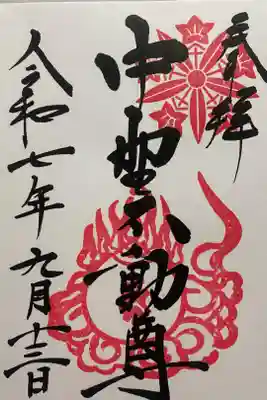 奉拝
中野不動尊
令和七年九月十三日